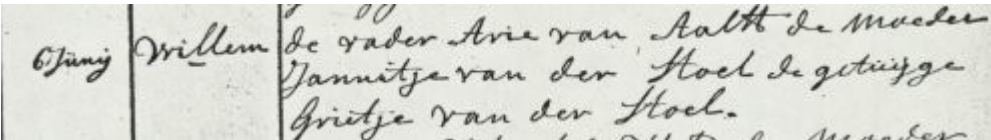 6 Junij Willem de vader Arie van Aalst de moeder
Jannitje van der Stoel de getuijge
Grietje van der Stoel.
de moeder